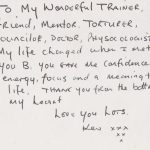 TO MY WONDERFUL TRAINER,
FRIEND, MENTOR, TORTURER,
COUNCILOR, DOCTOR, PHYSCOLOGIST
My life changed when I met
you B. You gave me confidence
energy, focus and a meaning to
life. Thank you from the bottom
my heart
Love you lots.
xxx
xx
x